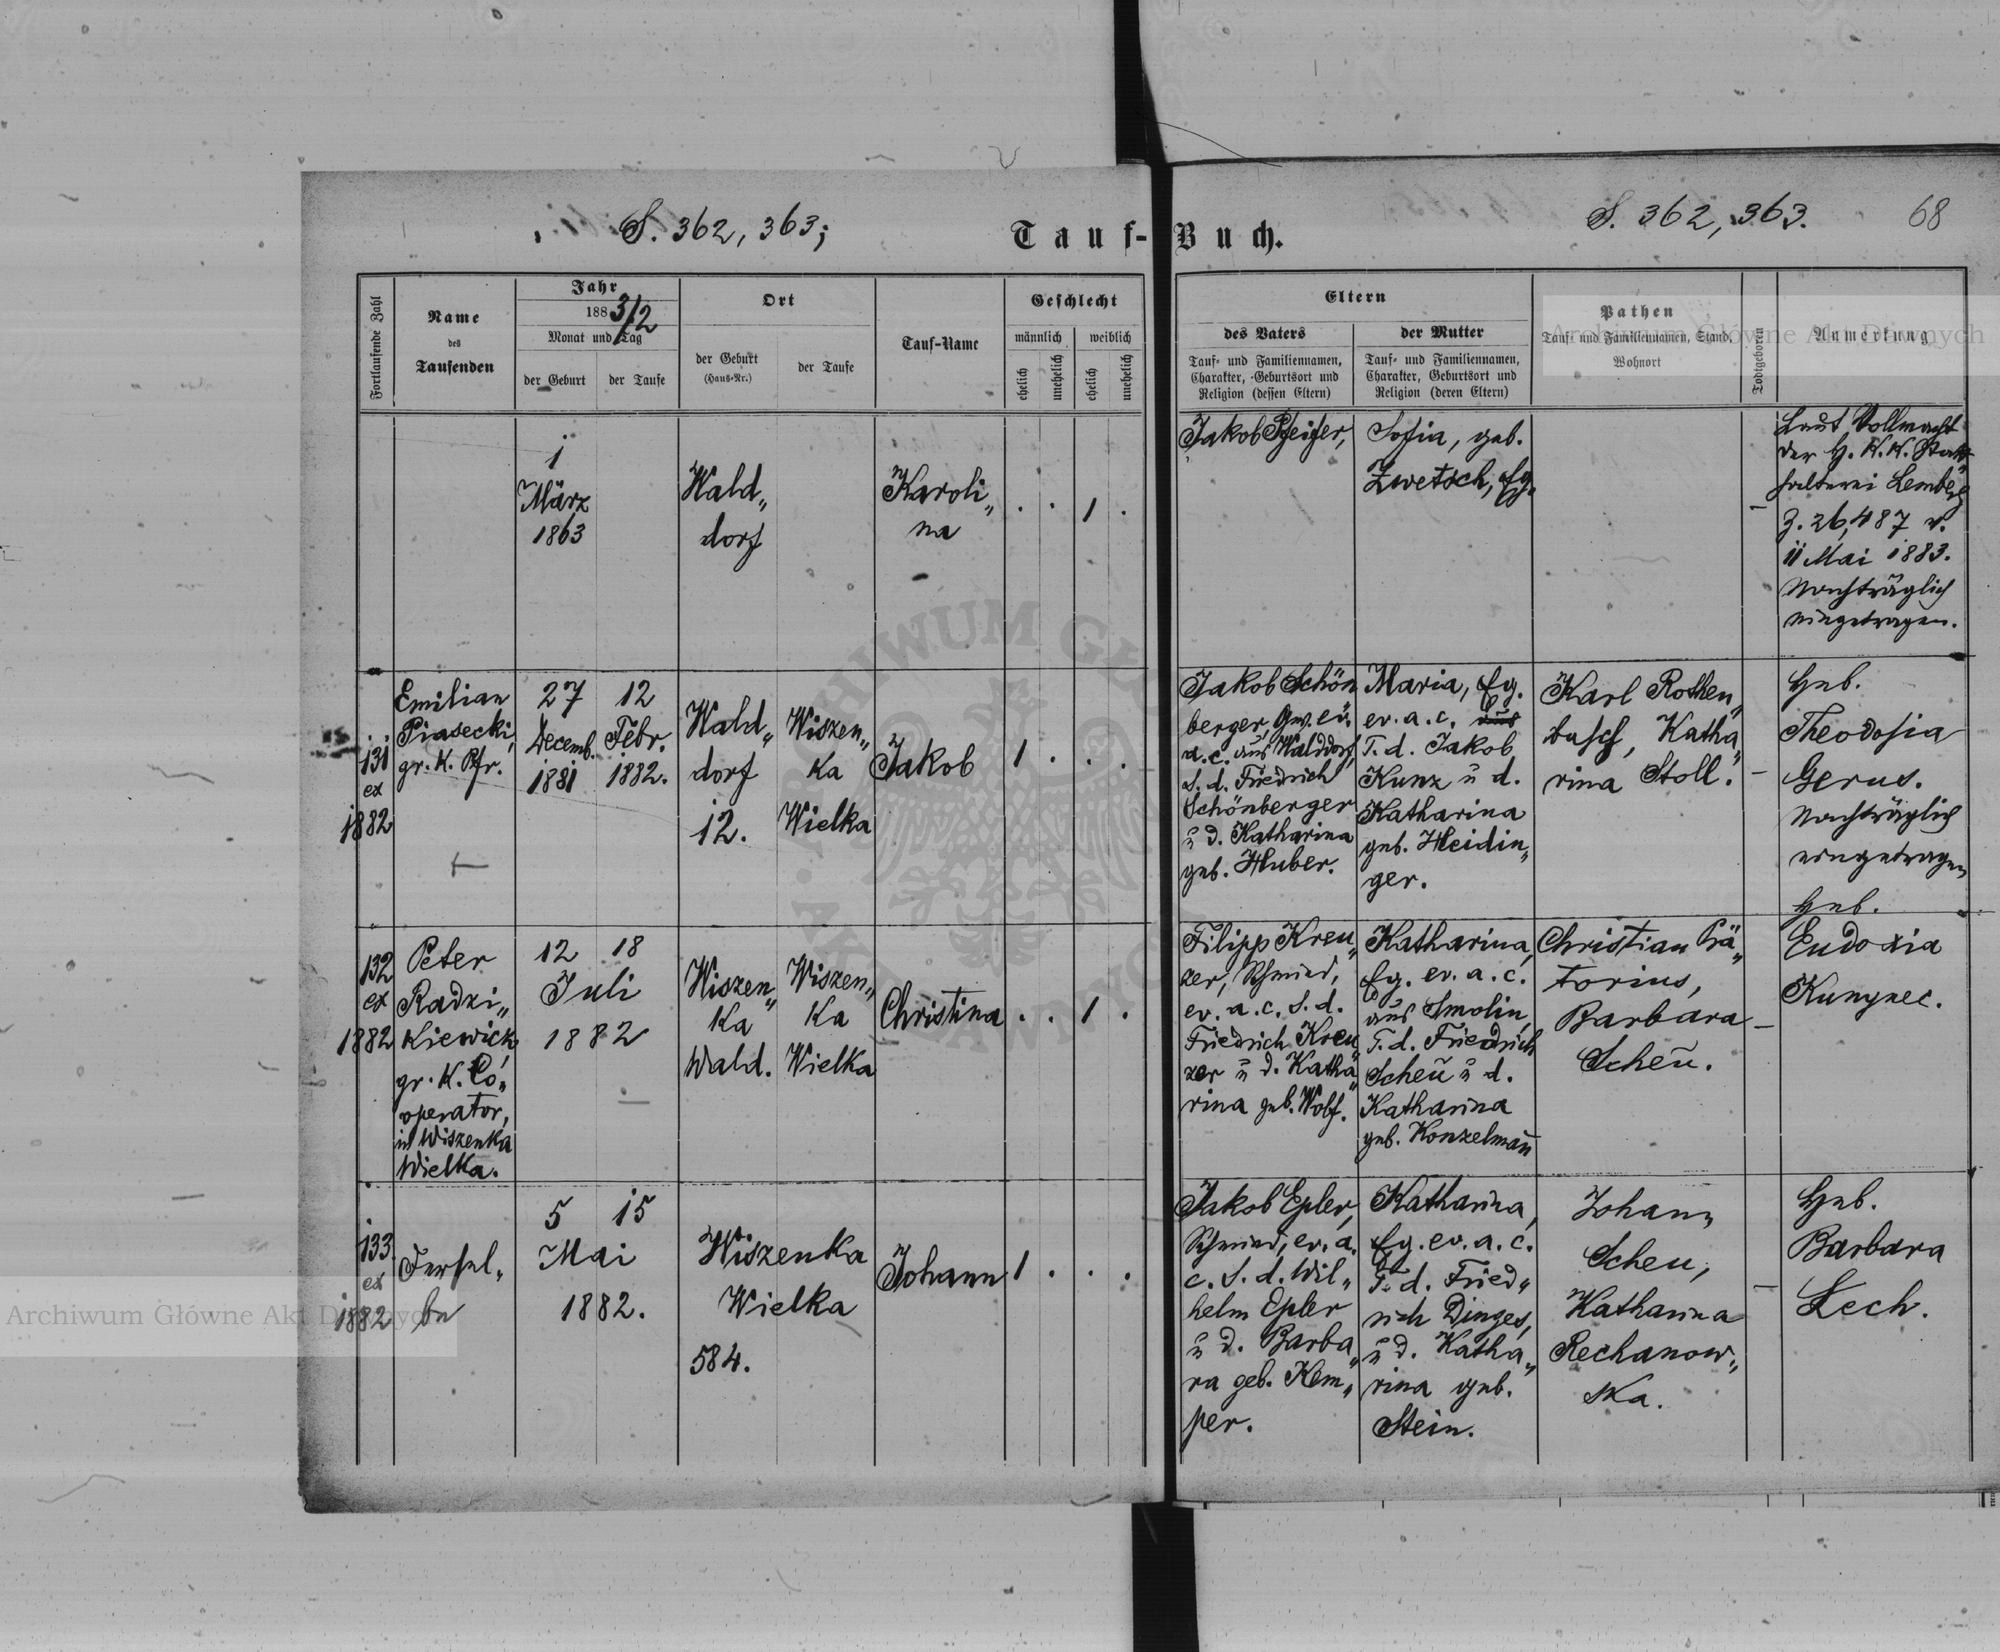 S. 362, 363;
S. 362, 363.
68
Tauf-Buch.
Fortlaufende Zahl
Name
des
Taufenden
Jahr
188 3/2
Monat und Tag
der Geburt
der Taufe
Ort
der Geburt
(Haus-Nr.)
der Taufe
Tauf-Name
Geschlecht
männlich
weiblich
ehelich
unehelich
ehelich
unehelich
Eltern
des Vaters
Tauf- und Familiennamen,
Charakter, Geburtsort und
Religion (dessen Eltern)
der Mutter
Tauf- und Familiennamen,
Charakter, Geburtsort und
Religion (deren Eltern)
Pathen
Tauf- und Familiennamen, Stand,
Wohnort
Todtgeboren
Anmerkung
1
März
1863
Wald„
dorf
Karoli„
na
. . 1 .
Jakob Pfeifer,
Sofia, geb.
Zwetsch, Eg.
Laut Vollmacht
der H. K. K. Statt„
halterei Lemberg
Z. 26,487 v.
11 Mai 1883.
Nachträglich
eingetragen.
131
ex
1882
Emilian
Piasecki,
gr. K. Pfr.
27
Decemb.
1881
12
Febr.
1882.
Wald„
dorf
12.
Wiszen„
ka
Wielka
Jakob
1 . . .
Jakob Schön
berger, Gw. ev.
a. c. aus Walddorf,
S. d. Friedrich
Schönberger
u d. Katharina
geb. Huber.
Maria, Eg.
ev. a. c. aus
T. d. Jakob
Kunz u d.
Katharina
geb. Heidin„
ger.
Karl Rothen„
busch, Katha„
rina Stoll.
–
Heb.
Theodosia
Gerus.
Nachträglich
eingetragen
132
ex
1882
Peter
Radzi„
kiewicz,
gr. K. Co„
operator,
in Wiszenka
Wielka.
12 18
Juli
1882
Wiszen„
ka
Wald.
Wiszen„
ka
Wielka
Christina
. . 1 .
Filipp Kreu„
zer, Schmied,
ev. a. c. S. d.
Friedrich Kreu„
zer u d. Katha„
rina geb. Wolf.
Katharina,
Eg. ev. a. c.
aus Smolin,
T. d. Friedrich
Scheu u d.
Katharina
geb. Konzelmann
Christian Prä„
torius,
Barbara
Scheu.
–
Heb.
Eudoxia
Kunynec.
133
ex
1882
Dersel„
be
5 15
Mai
1882.
Wiszenka
Wielka
584.
Johann
1 . . .
Jakob Epler,
Schmied, ev. a.
c. S. d. Wil„
helm Epler
u d. Barba„
ra geb. Kem„
per.
Katharina,
Eg. ev. a. c.
T. d. Fried„
rich Dinges,
u d. Katha„
rina geb.
Stein.
Johann
Scheu,
Katharina
Rechanow„
ska.
–
Heb.
Barbara
Lech.
Archiwum Główne Akt Dawnych
Archiwum Główne Akt Dawnych